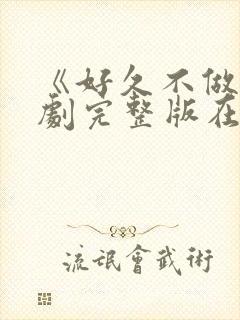 《好久不做
劇完整版在
流氓會武術